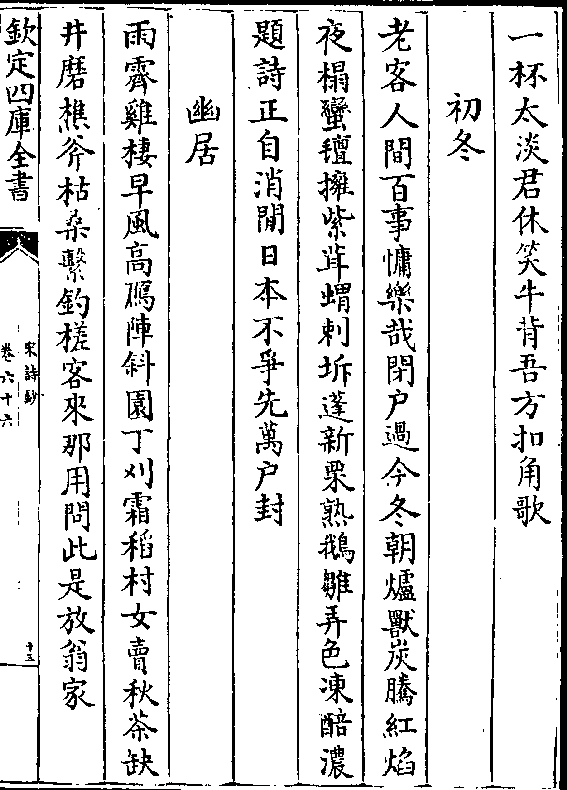 一杯太淡君休笑牛背吾方扣角歌
初冬
老客人間百事慵樂哉閉户過今冬朝爐獸炭騰紅焰
夜榻蠻氊擁紫茸蝟刺坼蓬新栗熟鵝雛弄色凍醅濃
題詩正自消閒日本不爭先萬户封
幽居
雨霽雞棲早風高鴈陣斜園丁刈霜稻村女賣秋茶缺
井磨樵斧枯桑繫釣槎客來那用問此是放翁家
欽定四庫全書
宋詩鈔
卷六十六
十三